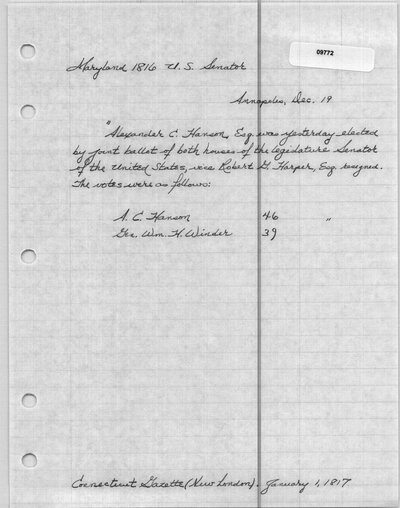 09772
Maryland 1816 U.S. Senator
Annapolis, Dec. 19
"Alexander C. Hanson, Esq. was yesterday elected
by joint ballot of both houses of the legislature Senator
of the United States, vice Robert G. Harper, Esq. resigned.
The votes were as follows:
A. C. Hanson 46 "
Gen. Wm. H. Winder 39
Connecticut Gazette (New London). January 1, 1817